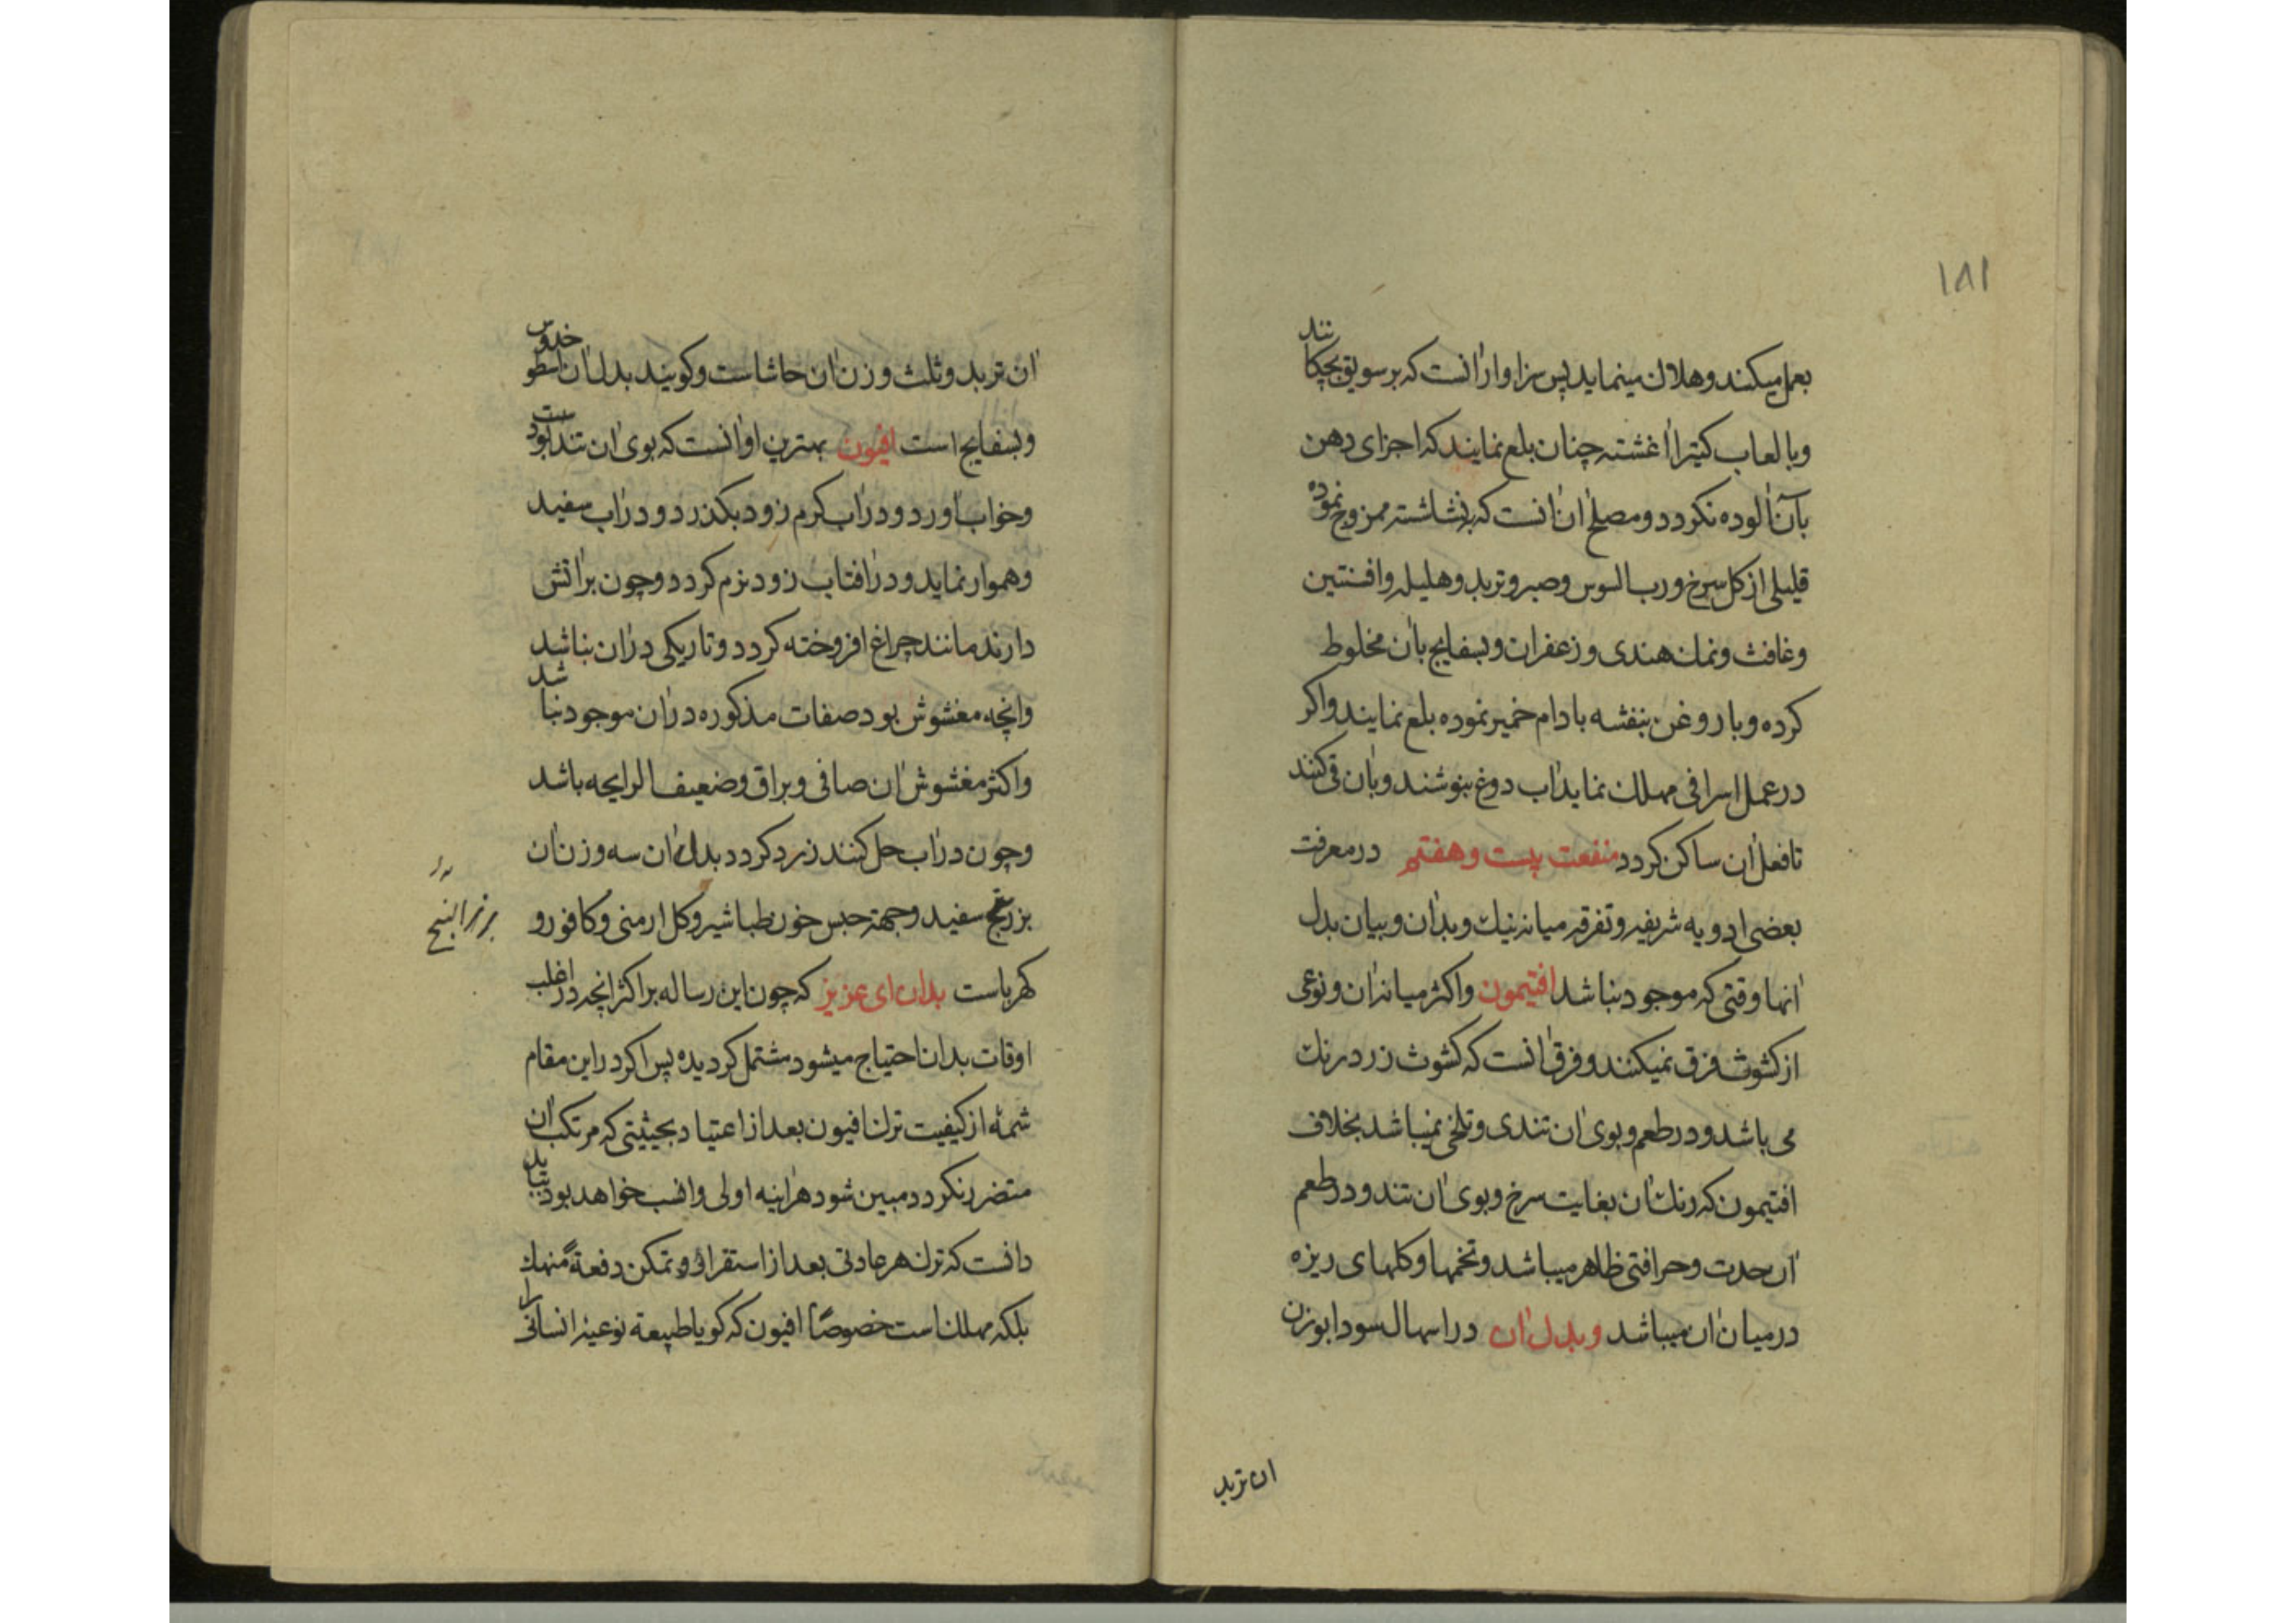 ۱۸۱
بعمل میکنند وهلاك مینماید پس سزاوار آنست که بر سویق بچکانند
وبا لعاب کتیرا آغشته چنان بلع نمایند که اجزای دهن
بآن آلوده نکردد ومصلح آن آنست که بنشاسته ممزوج نموده
قلیلی از کل سرخ ورب السوس وصبر وتربد وهلیله وافسنتین
وغافث ونمك هندی وزعفران وبسفایج بآن مخلوط
کرده وبا روغن بنفشه بادام خمیر نموده بلع نمایند واکر
در عمل اسرافی مهلك نماید آب دوغ بنوشند وبآن قی کنند
تا فعل آن ساکن کردد منفعت بیست وهفتم در معرفت
بعضی ادویه شریفه وتفرقه میانه نیك وبد آن وبیان بدل
آنها وقتی که موجود نباشد افتیمون واکثر میانه آن ونوعی
از کشوث فرق نمیکنند وفرق آنست که کشوث زرد رنك
می باشد ودر طعم وبوی آن تندی وتلخی نمیباشد بخلاف
افتیمون که رنك آن بغایت سرخ وبوی آن تند ودر طعم
آن حدت وحرافتی ظاهر میباشد وتخمها وکلهای ریزه
در میان آن میباشد وبدل آن در اسهال سودا بوزن
ان تربد
آن تربد وثلث وزن آن حاشاست وکویند بدل آن اسطوخدوس
وبسفایج است افیون بهترین او آنست که بوی آن تند بودست
وخواب آورد ودر آب کرم زود بکذرد ودر آب سفید
وهموار نماید ودر آفتاب زود نرم کردد وچون بر آتش
دارند مانند چراغ افروخته کردد وتاریکی در آن نباشد
وانچه مغشوش بود صفات مذکوره در آن موجود نباشد
واکثر مغشوش آن صافی وبراق وضعیف الرایحه باشد
وچون در آب حل کنند زرد کردد بدل آن سه وزن آن
بزر بنج سفید وجهته حبس خون طباشیر وکل ارمنی وکافور و
بزر البنج
کهرباست بدان ای عزیز که چون این رساله بر اکثر انچه در اغلب
اوقات بدان احتیاج میشود مشتمل کردیده پس اکر در این مقام
شمهٔ از کیفیت ترك افیون بعد از اعتیاد بحیثیتی که مرتکب آن
متضرر نکردد مبین شود هر آینه اولی وانسب خواهد بود بباید
دانست که ترك هر عادتی بعد از استقرار وتمکن دفعةً منهك
بلکه مهلك است خصوصًا افیون که کویا طبیعة نوعیه انسانی را